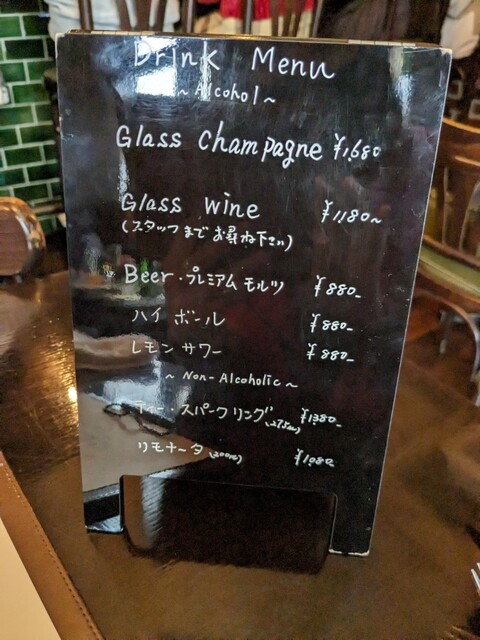 Drink Menu
~ Alcohol ~
Glass Champagne ¥1,680
Glass wine ¥1180~
(スタッフまでお尋ね下さい)
Beer・プレミアムモルツ ¥880-
ハイボール ¥880-
レモンサワー ¥880-
~ Non-Alcoholic ~
ティー・スパークリング ¥1380-
リモナータ (200ml) ¥1,080-